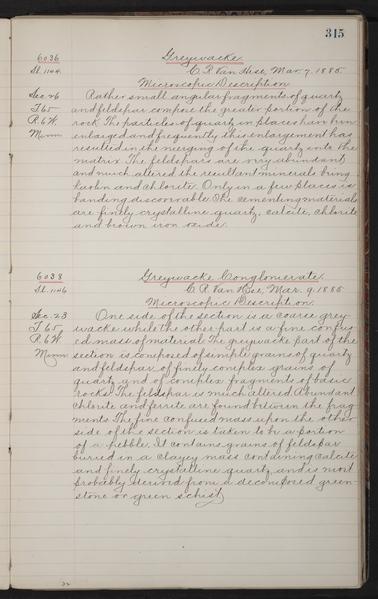 345
6036 Greywacke
Sl. 1144 C. R. Van Hise, Mar. 7. 1885
Microscopic Description
Sec. 26 Rather small angular fragments of quartz
T 65 and feldspar compose the greater portion of the
R. 6 W. rock. The particles of quartz in places have been
Minn enlarged and frequently this enlargement has
resulted in the merging of the quartz into the
matrix. The feldspars are very abundant
and much altered the resultant minerals being
kaolin and chlorite. Only in a few places is
banding discoverable. The cementing materials
are finely crystalline quartz, calcite, chlorite
and brown iron oxide.
6038 Greywacke Conglomerate.
Sl. 1146 C. R. Van Hise, Mar. 9. 1885
Microscopic Description.
Sec. 23 One side of the section is a coarse grey-
T 65 wacke while the other part is a fine confus
R. 6 W ed mass of material. The greywacke part of the
Minn section is composed of simple grains of quartz
and feldspar of finely complex grains of
quartz and of complex fragments of basic
rocks. The feldspar is much altered. Abundant
chlorite and ferrite are found between the frag
ments. The fine confused mass upon the other
side of the section is taken to be a portion
of a pebble. It contains grains of feldspar
buried in a clayey mass containing calcite
and finely crystalline quartz and is most
probably derived from a decomposed green-
stone or green schist